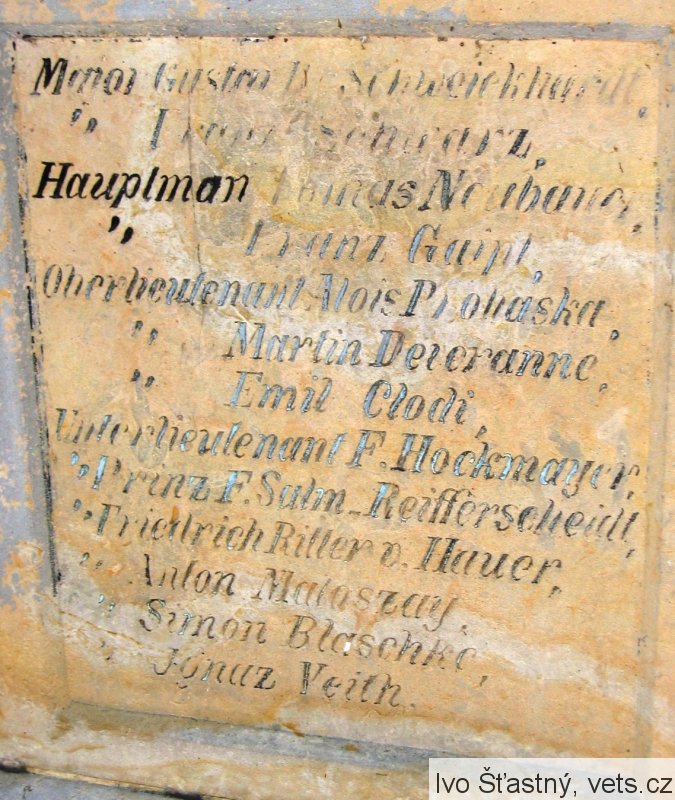 Major Gustav B. Schweickhardt,
" Franz Schwarz,
Hauptman Thomas Neubauer,
" Franz Gaipl,
Oberlieutenant Alois Prohaska,
" Martin Deleranne,
" Emil Clodi,
Unterlieutenant F. Hockmayer,
" Prinz F. Salm-Reifferscheidt,
" Friedrich Ritter v. Hauer,
" Anton Mataszay,
" Simon Blaschke,
" Ignaz Veith.
Ivo Šťastný, vets.cz